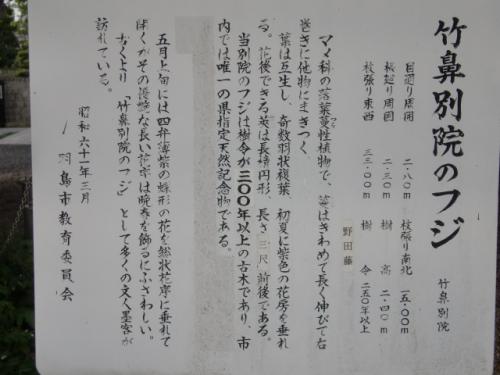 竹鼻別院のフジ
竹鼻別院
目廻り周囲 二・八〇m 枝張り南北 一五・〇〇m
根廻り周囲 二・三〇m 樹 高 二・四〇m
枝張り東西 三三・〇〇m 樹 令 二五〇年以上
野田藤
マメ科の落葉蔓性植物で、蔓はきわめて長く伸びて右
巻きに他物にまきつく
葉は互生し、奇数羽状複葉 初夏に紫色の花房を垂れ
る。花後できる莢は長楕円形、長さ三尺前後である。
当別院のフジは樹令が三〇〇年以上の古木であり、市
内では唯一の県指定天然記念物である。
五月上旬には四弁薄紫の蝶形の花を総状花序に垂れて
咲くがその優艶な長い花序は晩春を飾るにふさわしい。
古くより「竹鼻別院のフジ」として多くの文人墨客が
訪れている。
昭和六十一年三月
羽島市教育委員会